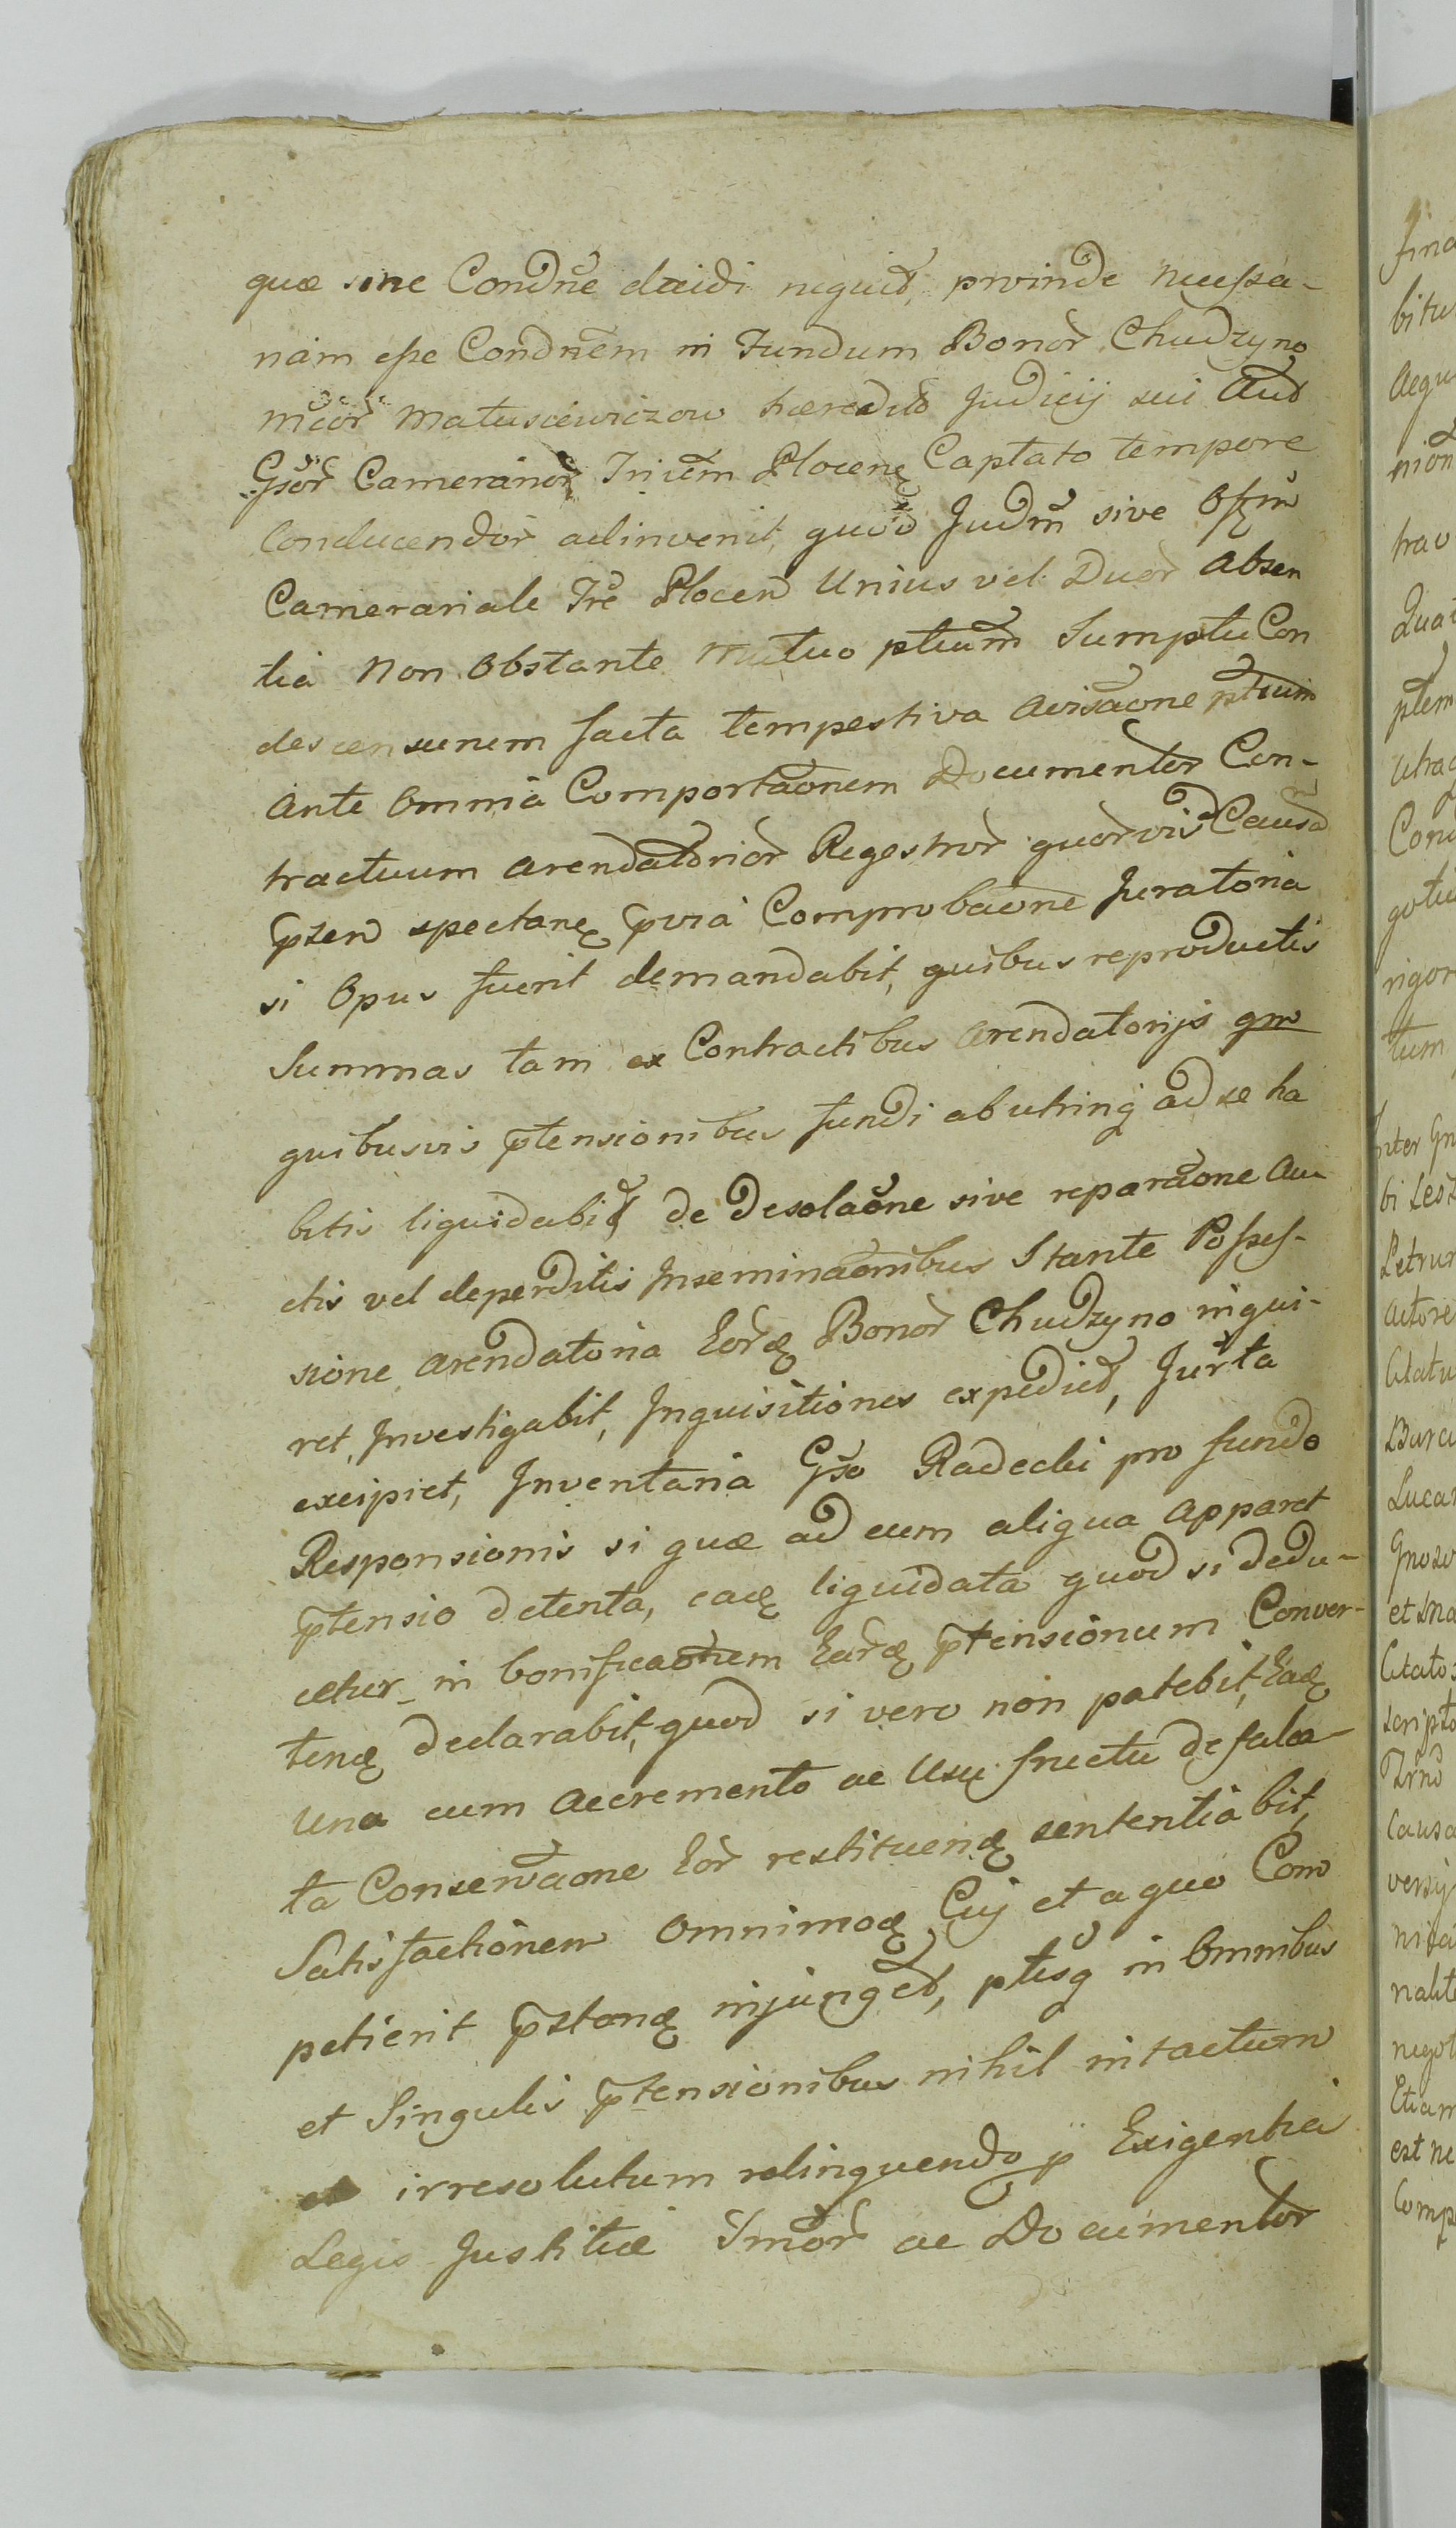 quæ sine Condne decidi nequit, proinde necessa-
riam esse Condnem in Fundum Bonor Chudzyno
mcor Matusiewiczow hæredit Judicij sui Aut
Gsor Camerarior Trium Plocen Captato tempore
Conducendor adinvenit, quod Judm sive Offm
Camerariale Tre Plocen Unius vel Duor absen
tia Non Obstante mutuo ptium Sumptu Con
descensurum facta tempestiva avisaone ptium
Ante Omnia Comportaonem Documentor Con-
tractuum arendatorior Regestror quorvis Causa
psen spectan pvia Comprobaone Juratoria
si Opus fuerit demandabit, quibus reproductis
Summas tam ex Contractibus arendatorijs qm
quibusvis ptensionibus fundi ab utrinq ad se ha
bitis liquidabit de Desolaone sive reparaone Au
ctis vel deperditis Inseminaonibus Stante Posses-
sione arendatoria Eord Bonor Chudzyno inqui-
ret, Investigabit, Inquisitiones expediet, Jurta
excipiet, Inventaria Gso Radecki pro fundo
Responsionis si quæ ad eum aliqua apparet
ptensio detenta, ead liquidata quod si dedu-
cetur in bonificaonem Eard ptensionum Conver-
tend declarabit, quod si vero non patebit, Ead
Una cum accremento ac Usu fructu defalca-
ta Conservaone Eor restituend sententiabit,
Satisfactionem Omnimod Cuj et a quo Com
petierit pstand injunget, ptisq in Omnibus
et Singulis ptensionibus nihil intactum
et irresolutum relinquendo p Exigentia
Legis Justitiæ Imor ac Documentor